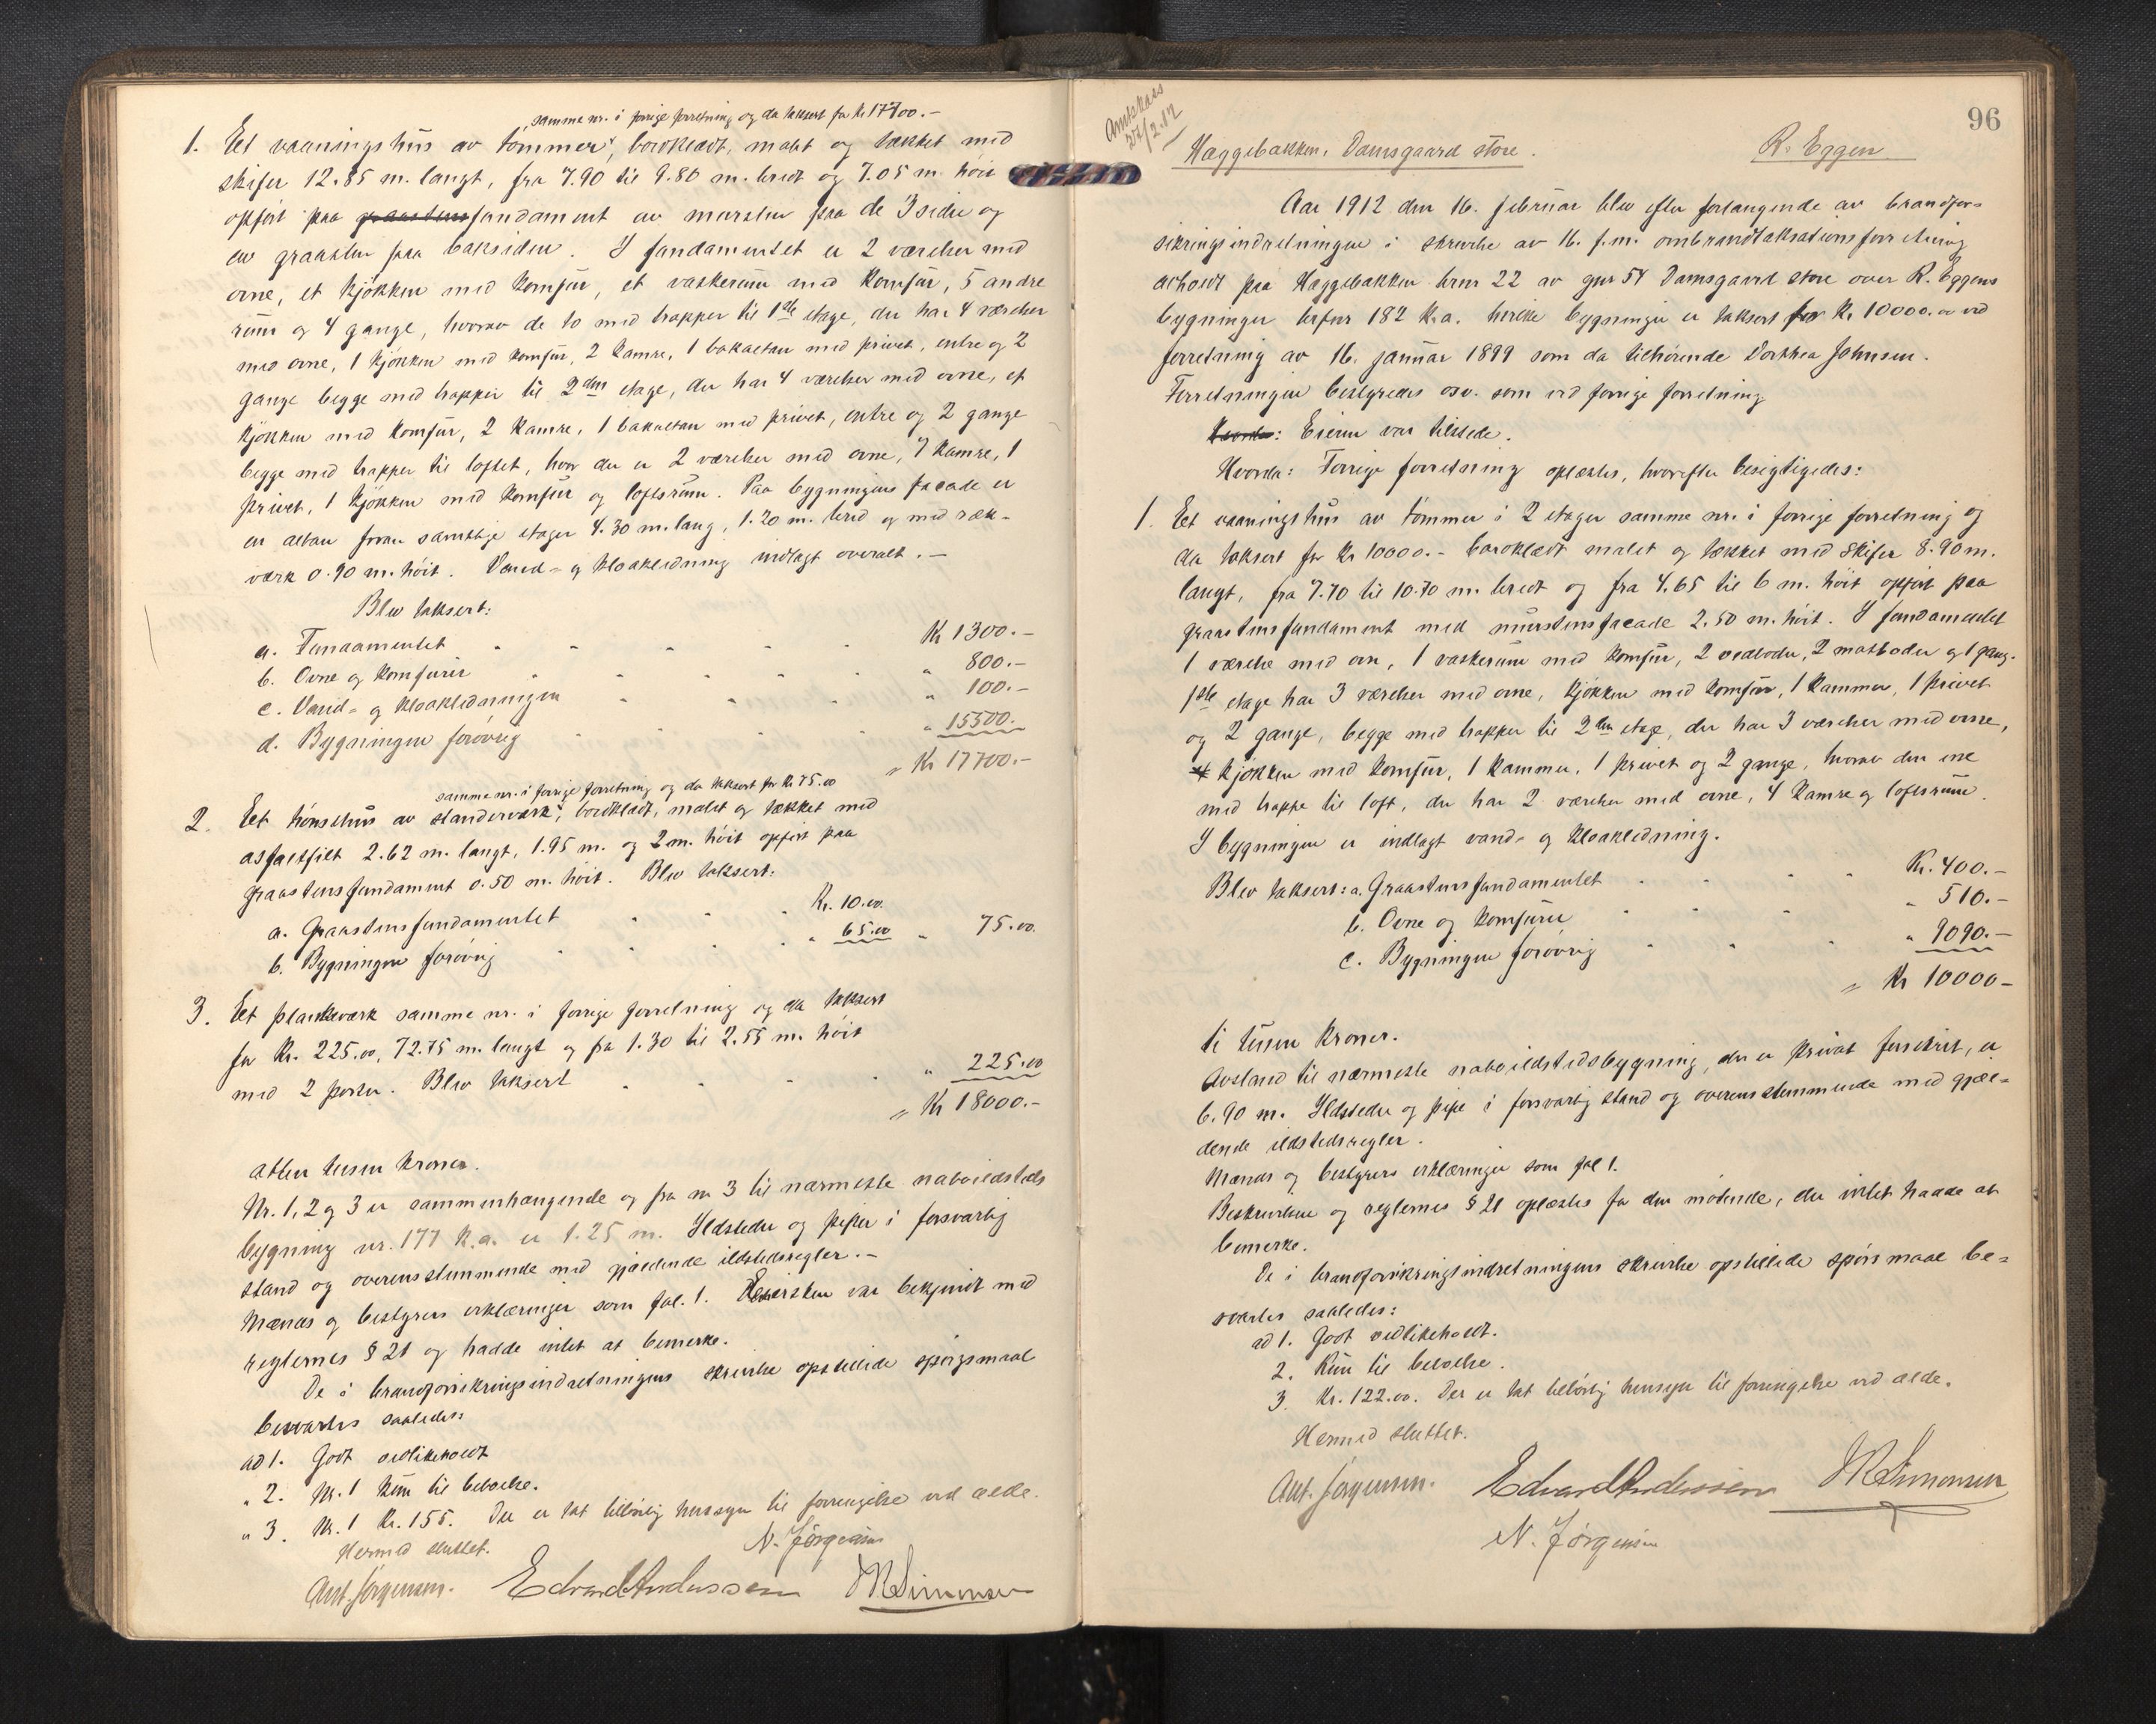 samme nr. i forrige forretning og da taksert for kr 17700.-
1. Et vaaningshus av tømmer, bordklædt, malet og tækket med
skifer 12.85 m. langt, fra 7.90 til 9.80 m. bredt og 7.05 m. høit
opført paa graastens fundament av mursten paa de 3 sider og
av graasten paa baksiden. I fundamentet er 2 værelser med
ovne, et kjøkken med komfur, et vaskerum med komfur, 5 andre
rum og 4 gange, hvorav de to med trapper til 1ste etage, der har 4 værelser
med ovne, 1 kjøkken med komfur, 2 kamre, 1 bakaltan med privet, entre og 2
gange begge med trapper til 2den etage, der har 4 værelser med ovne, et
kjøkken med komfur, 2 kamre, 1 bakaltan med privet, entre og 2 gange
begge med trapper til loftet, hvor der er 2 værelser med ovne, 7 kamre, 1
privet, 1 kjøkken med komfur og loftsrum. Paa bygningens facade er
en altan foran samtlige etager 4.30 m. lang, 1.20 m. bred og med ræk-
værk 0.90 m. høit. Vand- og kloakledning indlagt overalt.-
Blev taksert:
a. Fundamentet " " " " Kr 1300.-
b. Ovne og komfurer " " " " 800.-
c. Vand- og kloakledningen " " " " 100.-
d. Bygningen forøvrig " " " " 15500.-
" Kr 17700.-
samme nr. i forrige forretning og da taksert for kr 75.00
2. Eet hønsehus av standerværk, bordklædt, malet og tækket med
asfaltfilt 2.62 m. langt, 1.95 m. og 2 m. høit opført paa
graastensfundament 0.50 m. høit. Blev taksert:
a. Graastensfundamentet " " " Kr. 10.00
b. Bygningen forøvrig " " " " 65.00 " 75.00
3. Et plankeværk samme nr. i forrige forretning og da taksert
for Kr. 225.00, 72.75 m. langt og fra 1.30 til 2.55 m. høit
med 2 porter. Blev taksert " " " " 225.00
" Kr 18000.-
atten tusen kroner.
Nr. 1, 2 og 3 er sammenhængende og fra nr 3 til nærmeste naboildsteds
bygning nr. 177 k.a. er 1.25 m. Ildsteder og piper i forsvarlig
stand og overensstemmende med gjældende ildstedsregler.-
Mænds og bestyrers erklæringer som fol. 1. Eiersken var bekjendt med
reglernes § 21 og hadde intet at bemerke.
De i brandforsikringsindretningens skrivelse opstillede spørgsmaal
besvartes saaledes:
ad 1. Godt vedlikeholdt
" 2. Nr. 1 kun til beboelse.
" 3. Nr. 1 Kr. 155. Der er tat tilbørlig hensyn til forringelse ved ælde.
Hermed sluttet.
N. Jørgensen
Ant. Jørgensen. Edvard Andersen M Simonsen
Amtskass
27/2.12
96
Hæggebakken, Damsgaard store. R. Eggen
Aar 1912 den 16. februar blev efter forlangende av brandfor-
sikringsindretningen i skrivelse av 16. f.m. ombrandtaksationsforretning
avholdt paa Hæggebakken brnr 22 av gnr 54 Damsgaard store over R. Eggens
bygninger brfnr 182 k.a. hvilke bygninger er taksert for Kr 10000.00 ved
forretning av 16. januar 1899 som da tilhørende Dorthea Johnsen.
Forretningen bestyredes osv. som ved forrige forretning
Hvorda: Eieren var tilstede.
Hvorda: Forrige forretning oplæstes, hvorefter besigtigedes:
1. Eet vaaningshus av tømmer i 2 etager samme nr. i forrige forretning og
da taksert for kr 10000.- bordklædt malet og tækket med skifer 8.90 m.
langt, fra 7.70 til 10.70 m. bredt og fra 4.65 til 6 m. høit opført paa
graastensfundament med murstensfacade 2.50 m. høit. I fundamentet
1 værelse med ovn, 1 vaskerum med komfur, 2 vedboder, 2 matboder og 1 gang.
1ste etage har 3 værelser med ovne, kjøkken med komfur, 1 kammer, 1 privet
og 2 gange, begge med trapper til 2den etage, der har 3 værelser med ovne,
kjøkken med komfur, 1 kammer, 1 privet og 2 gange, hvorav den ene
med trappe til loft, der har 2 værelser med ovne, 4 kamre og loftsrum.
I bygningen er indlagt vand- og kloakledning.
Blev taksert: a. Graastensfundamentet " " " " Kr. 400.-
b. Ovne og komfurer " " " " 510.-
c. Bygningen forøvrig " " " " 9090.-
" Kr 10000-
ti tusen kroner.
Avstand til nærmeste naboildstedsbygning, der er privat forsikret, er
6.90 m. Ildsteder og pipe i forsvarlig stand og overensstemmende med gjæl-
dende ildstedsregler.
Mænds og bestyrers erklæringer som fol 1.
Beskrivelsen og reglernes § 21 oplæstes for den møtende, der intet hadde at
bemerke.
De i brandforsikringsindretningens skrivelse opstillede spørsmaal be-
svartes saaledes:
ad 1. Godt vedlikeholdt.
2. Kun til beboelse.
3. Kr. 122.00. Der er tat tilbørlig hensyn til forringelse ved ælde.
Hermed sluttet.
Ant. Jørgensen. Edvard Andersen M Simonsen
N. Jørgensen